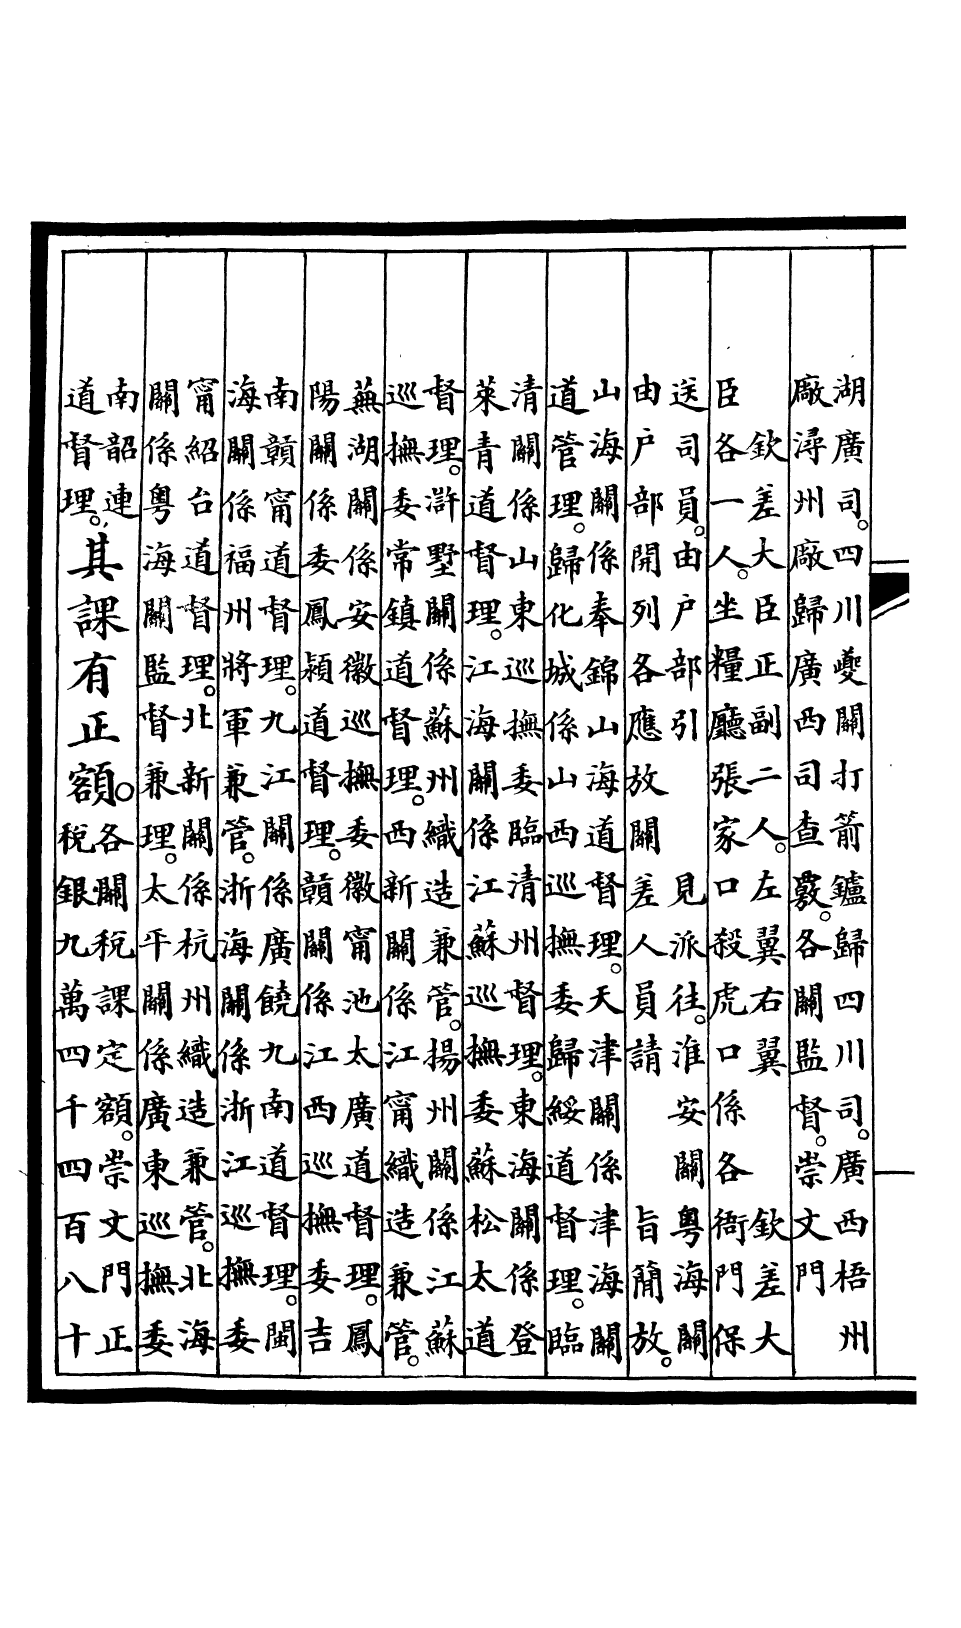 湖廣司。四川夔關打箭鑪歸四川司。廣西梧州
廠潯州廠歸廣西司查覈。各關監督。崇文門
欽差大臣正副二人。左翼右翼　欽差大
臣各一人。坐糧廳張家口殺虎口係各衙門保
送司員。由户部引　見派往。淮安關粤海關
由户部開列各應放關差人員請　旨簡放。
山海關係奉錦山海道督理。天津關係津海關
道管理。歸化城係山西巡撫委歸綏道督理。臨
清關係山東巡撫委臨清州督理。東海關係登
萊青道督理。江海關係江蘇巡撫委蘇松太道
督理。滸墅關係蘇州織造兼管。揚州關係江蘇
巡撫委常鎮道督理。西新關係江甯織造兼管。
蕪湖關係安徽巡撫委徽甯池太廣道督理。鳳
陽關係委鳳潁道督理。贛關係江西巡撫委吉
南贛甯道督理。九江關係廣饒九南道督理。閩
海關係福州將軍兼管。浙海關係浙江巡撫委
甯紹台道督理。北新關係杭州織造兼管。北海
關係粤海關監督兼理。太平關係廣東巡撫委
南韶連
道督理。
其課有正額。
各關稅課定額。崇文門正
稅銀九萬四千四百八十